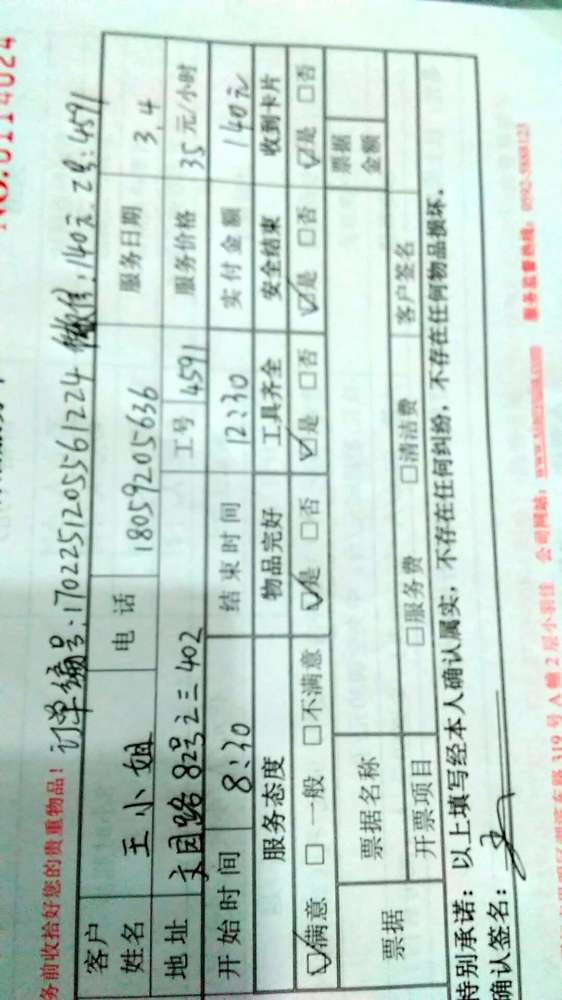 NO.0114024
务前收拾好您的贵重物品！
订单编号：170225120556 1224 微信：140元 工号：4591
客户姓名 王小姐 电话 18059205636 服务日期 3.4
地址 文园路82号之三402 工号 4591 服务价格 35元/小时
开始时间 8:30 结束时间 12:30 实付金额 140元
服务态度 物品完好 工具齐全 安全结束 收到卡片
☑满意 □一般 □不满意 ☑是 □否 ☑是 □否 ☑是 □否 ☑是 □否
票据 票据名称 票据金额
开票项目 □服务费 □清洁费 客户签名
特别承诺：以上填写经本人确认属实，不存在任何纠纷，不存在任何物品损坏.
确认签名：
东路319号A幢2层小羽佳 公司网站： 服务监督热线：0592-5888123